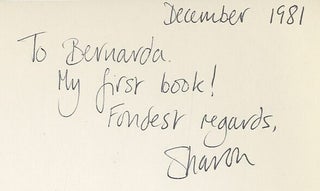 December 1981
To Bernarda.
My first book!
Fondest regards,
Sharon